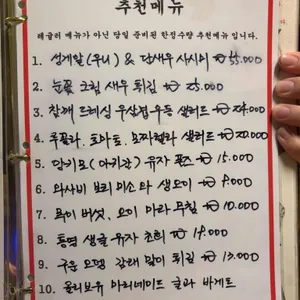 추천메뉴
레귤러 메뉴가 아닌 당일 준비된 한정수량 추천메뉴 입니다.
1. 성게알(우니) & 단새우 사시미 ₩55.000
2. 눈꽃 크림 새우 튀김 ₩23.000
3. 참깨 드레싱 우삼겹 우동 샐러드 ₩24.000
4. 루꼴라. 토마토. 모짜렐라 샐러드 ₩20.000
5. 안키모(아귀간) 유자 폰즈 ₩15.000
6. 와사비 보리미소와 생오이 ₩9.000
7. 목이버섯. 오이 마라 무침 ₩10.000
8. 통영 생굴 유자 초회 ₩19.000
9. 구운 오뎅 감태 말이 튀김 ₩13.000
10. 올리브유 마리네이드 굴과 바게트